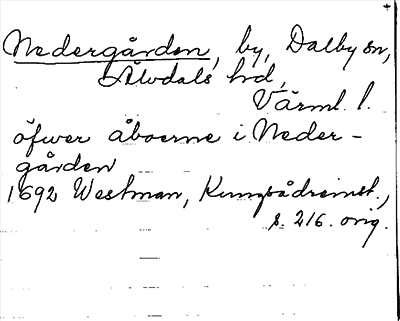 Nedergården, by, Dalby sn,
Älvdals hd,
Värml. l.
öfwer åboerne i Neder-
gården
1692 Westman, Kungsådreinst.,
s. 216. orig.